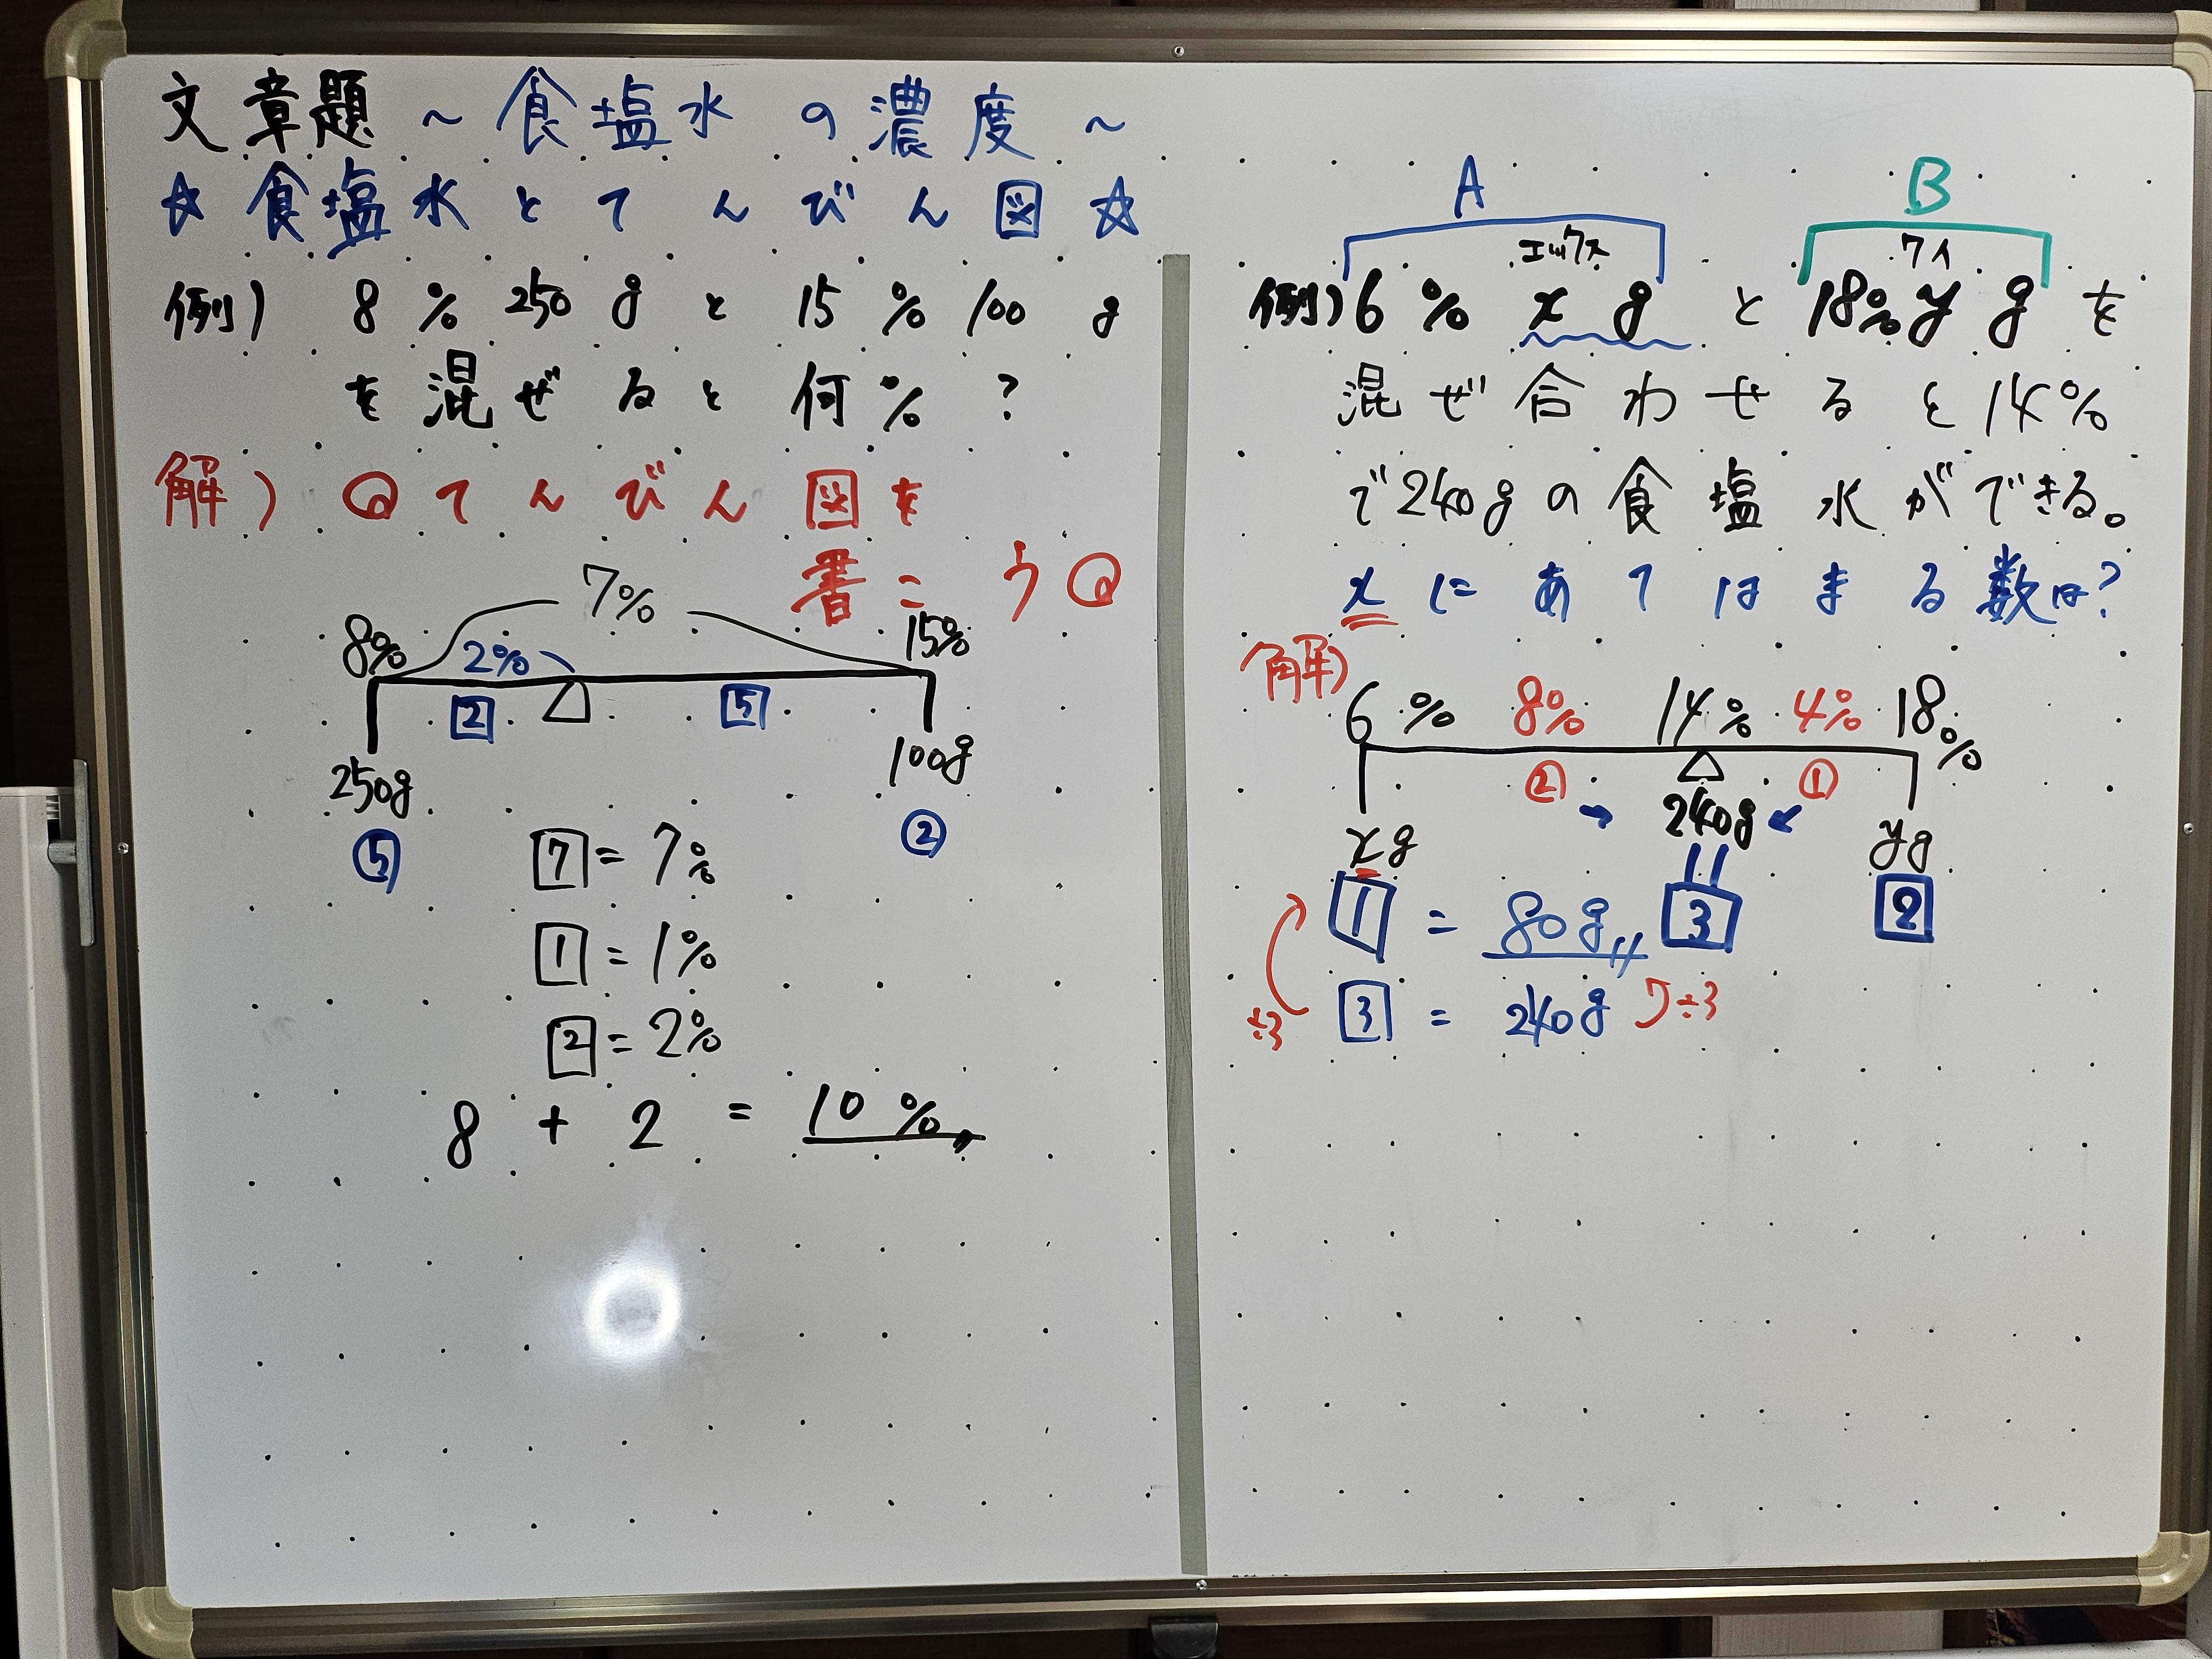 文章題 ~ 食塩水の濃度 ~
☆ 食塩水とてんびん図 ☆
例) 8% 250gと15% 100g
を混ぜると何%?
解) てんびん図を
書こう
7%
8% 2% 15%
2 5
250g 100g
⑤ ②
7 = 7%
1 = 1%
2 = 2%
8 + 2 = 10%
A B
エックス ワイ
例) 6% x gと18% y gを
混ぜ合わせると14%
で240gの食塩水ができる。
xにあてはまる数は?
解)
6% 8% 14% 4% 18%
② ①
→ 240g ←
xg yg
1 = 80g 3 2
÷3 3 = 240g ÷3